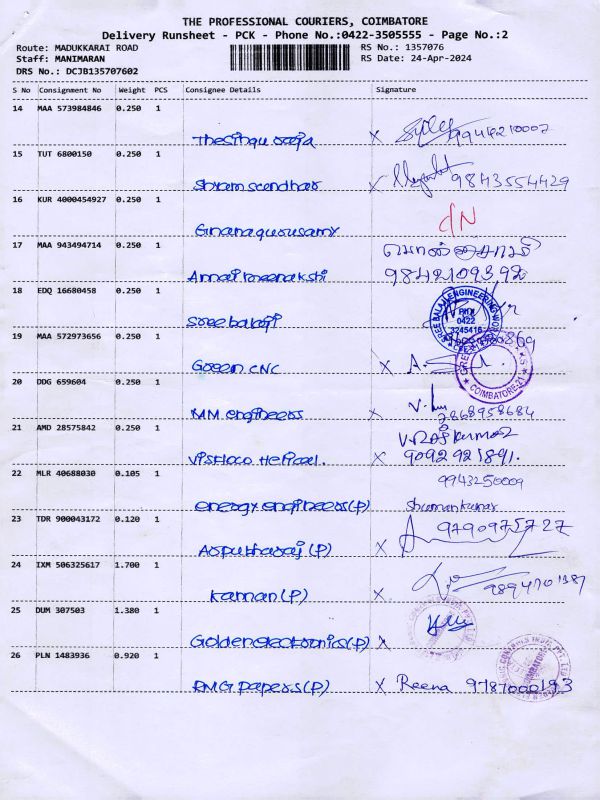 THE PROFESSIONAL COURIERS, COIMBATORE
Delivery Runsheet - PCK - Phone No.:0422-3505555 - Page No.:2
Route: MADUKKARAI ROAD RS No.: 1357076
Staff: MANIMARAN RS Date: 24-Apr-2024
DRS No.: DCJB135707602
S No Consignment No Weight PCS Consignee Details Signature
14 MAA 573984846 0.250 1
X 9944210007
15 TUT 6800150 0.250 1
Shramsendhar X 9843554429
16 KUR 4000454927 0.250 1
Gnanagurusamy
17 MAA 943494714 0.250 1
Annai meenakshi 9842109392
18 EDQ 16680458 0.250 1
Sree balaji
SREE BALAJI ENGINEERING WORKS
0422
3245416
19 MAA 572973656 0.250 1
Green CNC X A.
COIMBATORE-21
20 DDG 659604 0.250 1
MM engineers X 7868958684
21 AMD 28575842 0.250 1
V.RAJKUMAR
Helical. X 9092921891.
22 MLR 40688030 0.105 1
9943250009
energy engineers(P) Shumankumar
23 TDR 900043172 0.120 1
9790975727
Arputharaj (P) X
24 IXM 506325617 1.700 1
Kannan (P) X 9894701387
25 DUM 307503 1.380 1
Goldenelectronics(P) X
26 PLN 1483936 0.920 1
RMG Papers(P) X Reena 9787000193